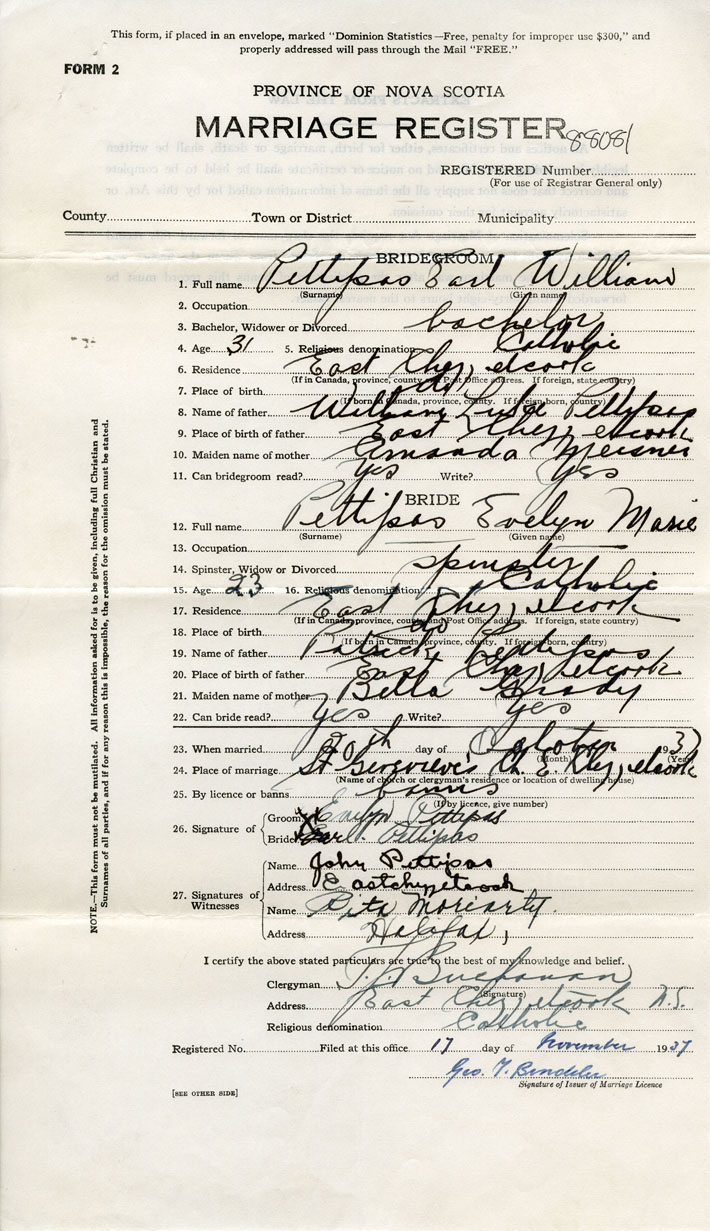 This form, if placed in an envelope, marked "Dominion Statistics—Free, penalty for improper use $300," and
properly addressed will pass through the Mail "FREE."
FORM 2
PROVINCE OF NOVA SCOTIA
MARRIAGE REGISTER
REGISTERED Number
(For use of Registrar General only)
County Town or District Municipality
BRIDEGROOM
1. Full name Pettipas Earl William
(Surname) (Given name)
2. Occupation
3. Bachelor, Widower or Divorced bachelor
4. Age 31 5. Religious denomination Catholic
6. Residence East Chezzetcook
(If in Canada, province, county and Post Office address. If foreign, state country)
7. Place of birth do
(If born in Canada, province, county. If foreign born, country)
8. Name of father William Pettipas
9. Place of birth of father East Chezzetcook
10. Maiden name of mother Amanda Meisner
11. Can bridegroom read? Yes Write? Yes
BRIDE
12. Full name Pettipas Evelyn Marie
(Surname) (Given name)
13. Occupation
14. Spinster, Widow or Divorced spinster
15. Age 23 16. Religious denomination Catholic
17. Residence East Chezzetcook
(If in Canada, province, county and Post Office address. If foreign, state country)
18. Place of birth do
(If born in Canada, province, county. If foreign born, country)
19. Name of father Patrick Pettipas
20. Place of birth of father East Chezzetcook
21. Maiden name of mother Bella Grady
22. Can bride read? yes Write? yes
23. When married 30th day of October 1937
(Month) (Year)
24. Place of marriage St Genevieve's Ch. E. Chezzetcook
(Name of church or clergyman's residence or location of dwelling house)
25. By licence or banns banns
(If by licence, give number)
26. Signature of Groom Evelyn Pettipas
Bride Earl Pettipas
27. Signatures of Witnesses
Name John Pettipas
Address Eastchezzetcook
Name Rita Moriarty
Address Halifax,
I certify the above stated particulars are true to the best of my knowledge and belief.
Clergyman Buchanan
(Signature)
Address East Chezzetcook N.S.
Religious denomination Catholic
Registered No. Filed at this office 17 day of November 1937
Geo. T.
Signature of Issuer of Marriage Licence
[SEE OTHER SIDE]
NOTE.—This form must not be mutilated. All information asked for is to be given, including full Christian and
Surnames of all parties, and if for any reason this is impossible, the reason for the omission must be stated.